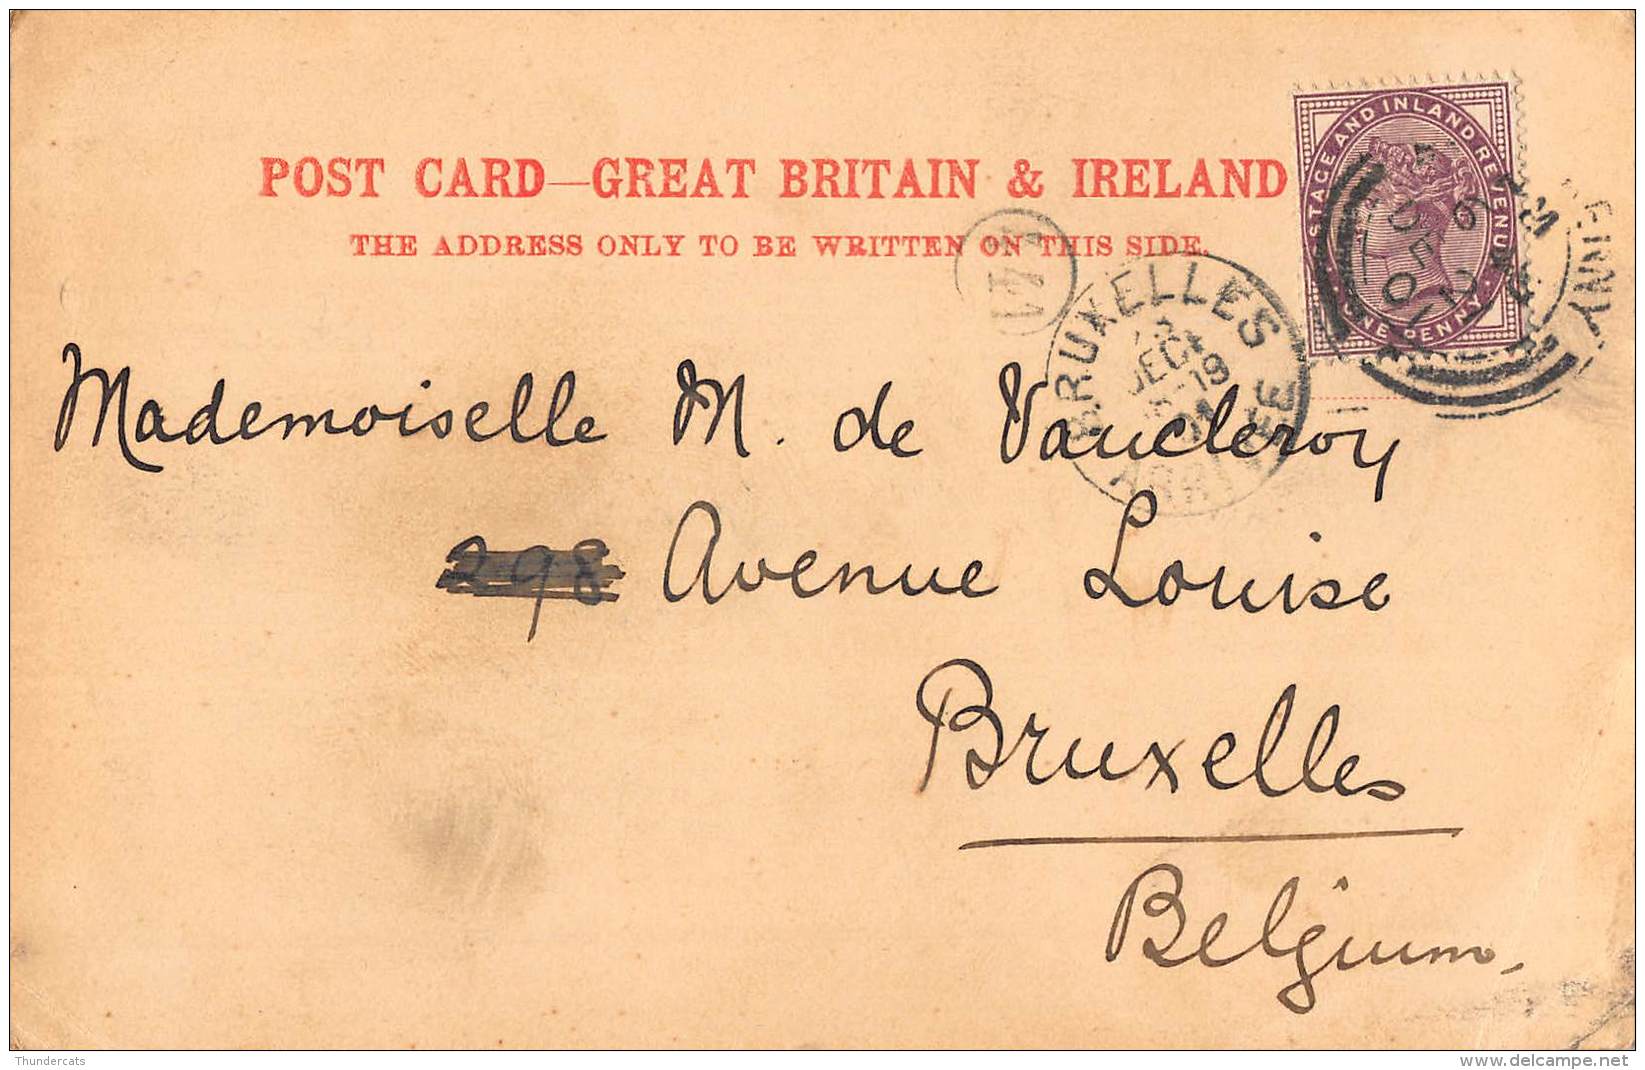 POST CARD—GREAT BRITAIN & IRELAND
THE ADDRESS ONLY TO BE WRITTEN ON THIS SIDE.
STAGE AND INLAND REVENU
ONE PENNY
BRUXELLES
ARRIVEE
Mademoiselle M. de Vaucleroy
298 Avenue Louise
Bruxelles
Belgium.
Thundercats
delcampe.net